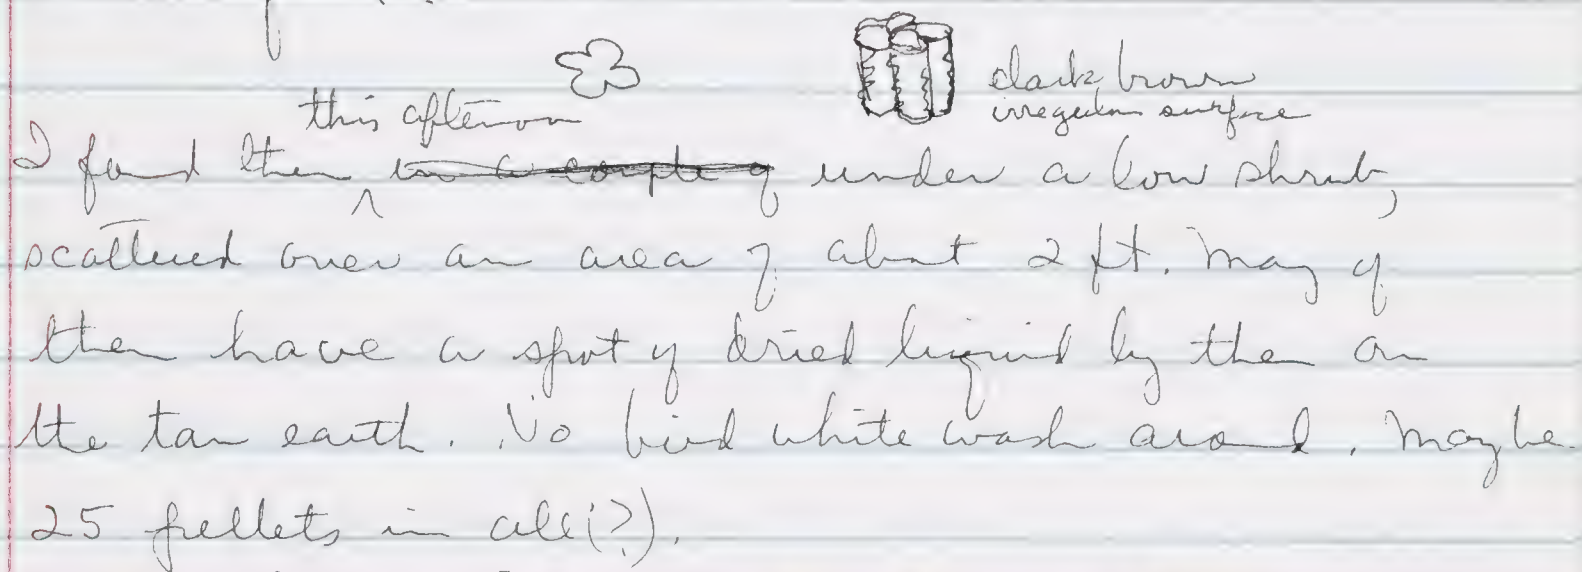 dark, brown
irregular surface
this afternoon
I found them in a couple of under a low shrub,
scattered over an area of about 2 ft. Many of
them have a spot of dried liquid by them on
the tan earth. No bird white wash around. Maybe
25 pellets in all(?).